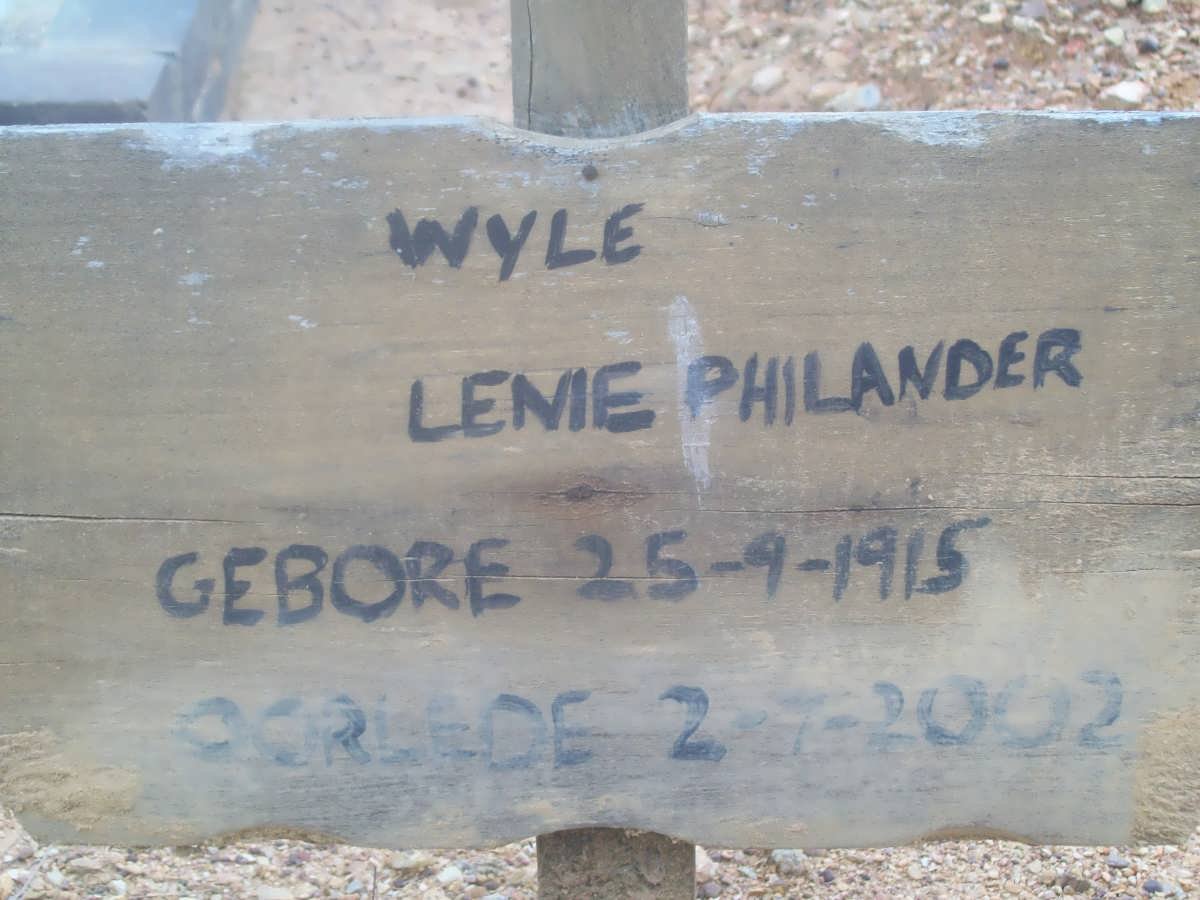 WYLE
LENIE PHILANDER
GEBORE 25-9-1915
OORLEDE 2-7-2002